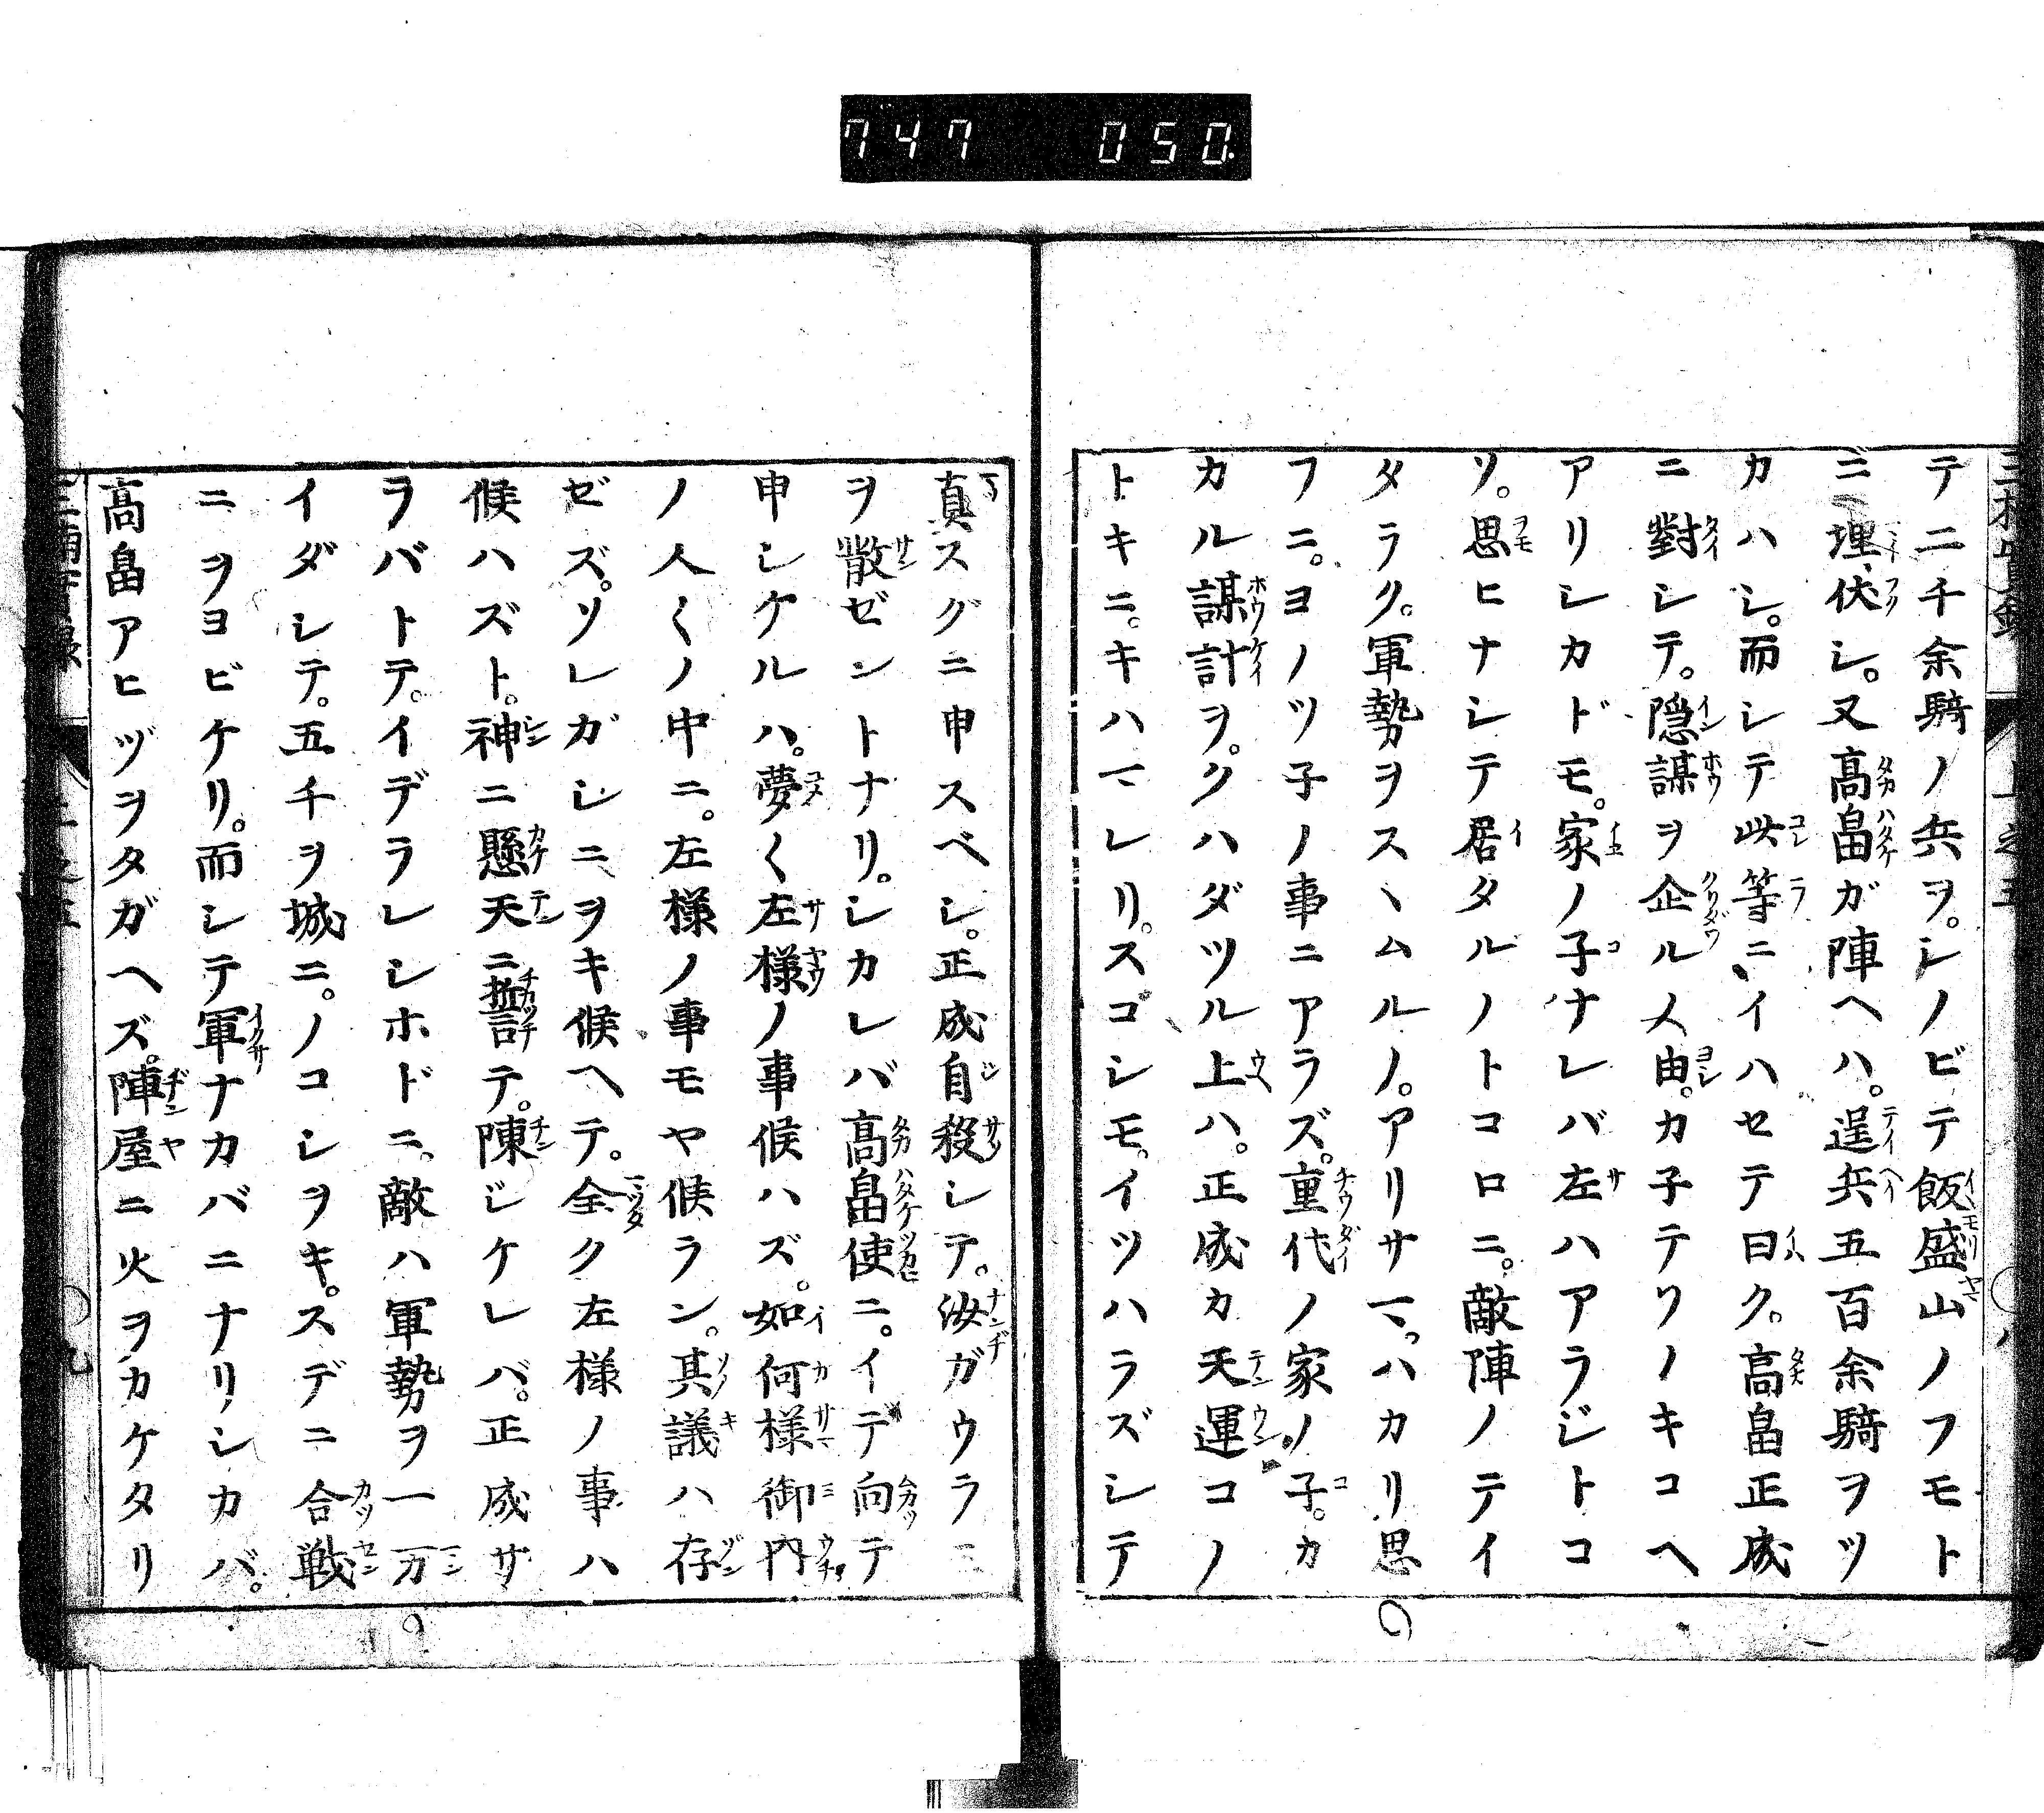 747 050
テ二千余騎ノ兵ヲ。シノビテ飯盛山ノフモト
ニ埋伏シ。又高畠ガ陣ヘハ。逞兵五百余騎ヲツ
カハシ。而シテ此等ニイハセテ曰ク。高畠正成
ニ對シテ。隠謀ヲ企ルメ由。カ子テワノキコヘ
アリシカドモ。家ノ子ナレバ左ハアラジトコ
ソ。思ヒナシテ居タルノトコロニ。敵陣ノテイ
タラク。軍勢ヲスヽムルノ。アリサマ。ハカリ思
フニ。ヨノツ子ノ事ニアラズ。重代ノ家ノ子。カ
カル謀計ヲ。クハダツル上ハ。正成カ天運コノ
トキニ。キハマレリ。スコシモ。イツハラズシテ
真スグニ申スベシ。正成自殺シテ。汝ガウラミ
ヲ散ゼントナリ。シカレバ高畠使ニ。イデ向テ
申シケルハ。夢〱左様ノ事候ハズ。如何様御内
ノ人〱ノ中ニ。左様ノ事モヤ候ラン。其議ハ存
ゼズ。ソレガシニヲキ候ヘテ。全ク左様ノ事ハ
候ハズト。神ニ懸天ニ誓テ。陳ジケレバ。正成サ
ラバトテ。イデラレシホドニ。敵ハ軍勢ヲ一万
イダシテ。五千ヲ城ニ。ノコシヲキ。スデニ合戦
ニヲヨビケリ。而シテ軍ナカバニナリシカバ。
高畠アヒヅヲタガヘズ。陣屋ニ火ヲカケタリ